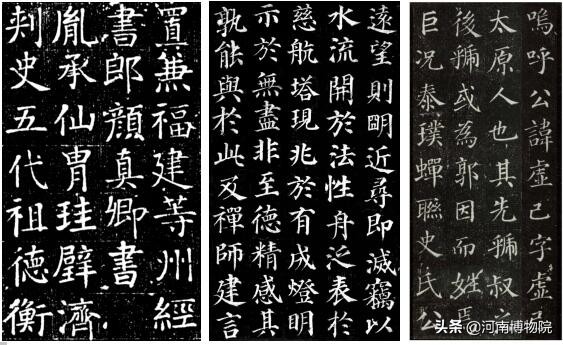 置兼福建等州經
書郎顏真卿書
胤承仙胄珪璧濟
刾史五代祖德衡
遠望則朙近尋即滅竊以
水流開於法性舟泛表於
慈航塔現兆於有成燈明
示於無盡非至德精感其
孰能與於此及禪師建言
嗚呼公諱虛己字虛己
太原人也其先虢叔之
後虢或為郭因而姓焉
巨況泰璞蟬聯史氏公
头条@河南博物院